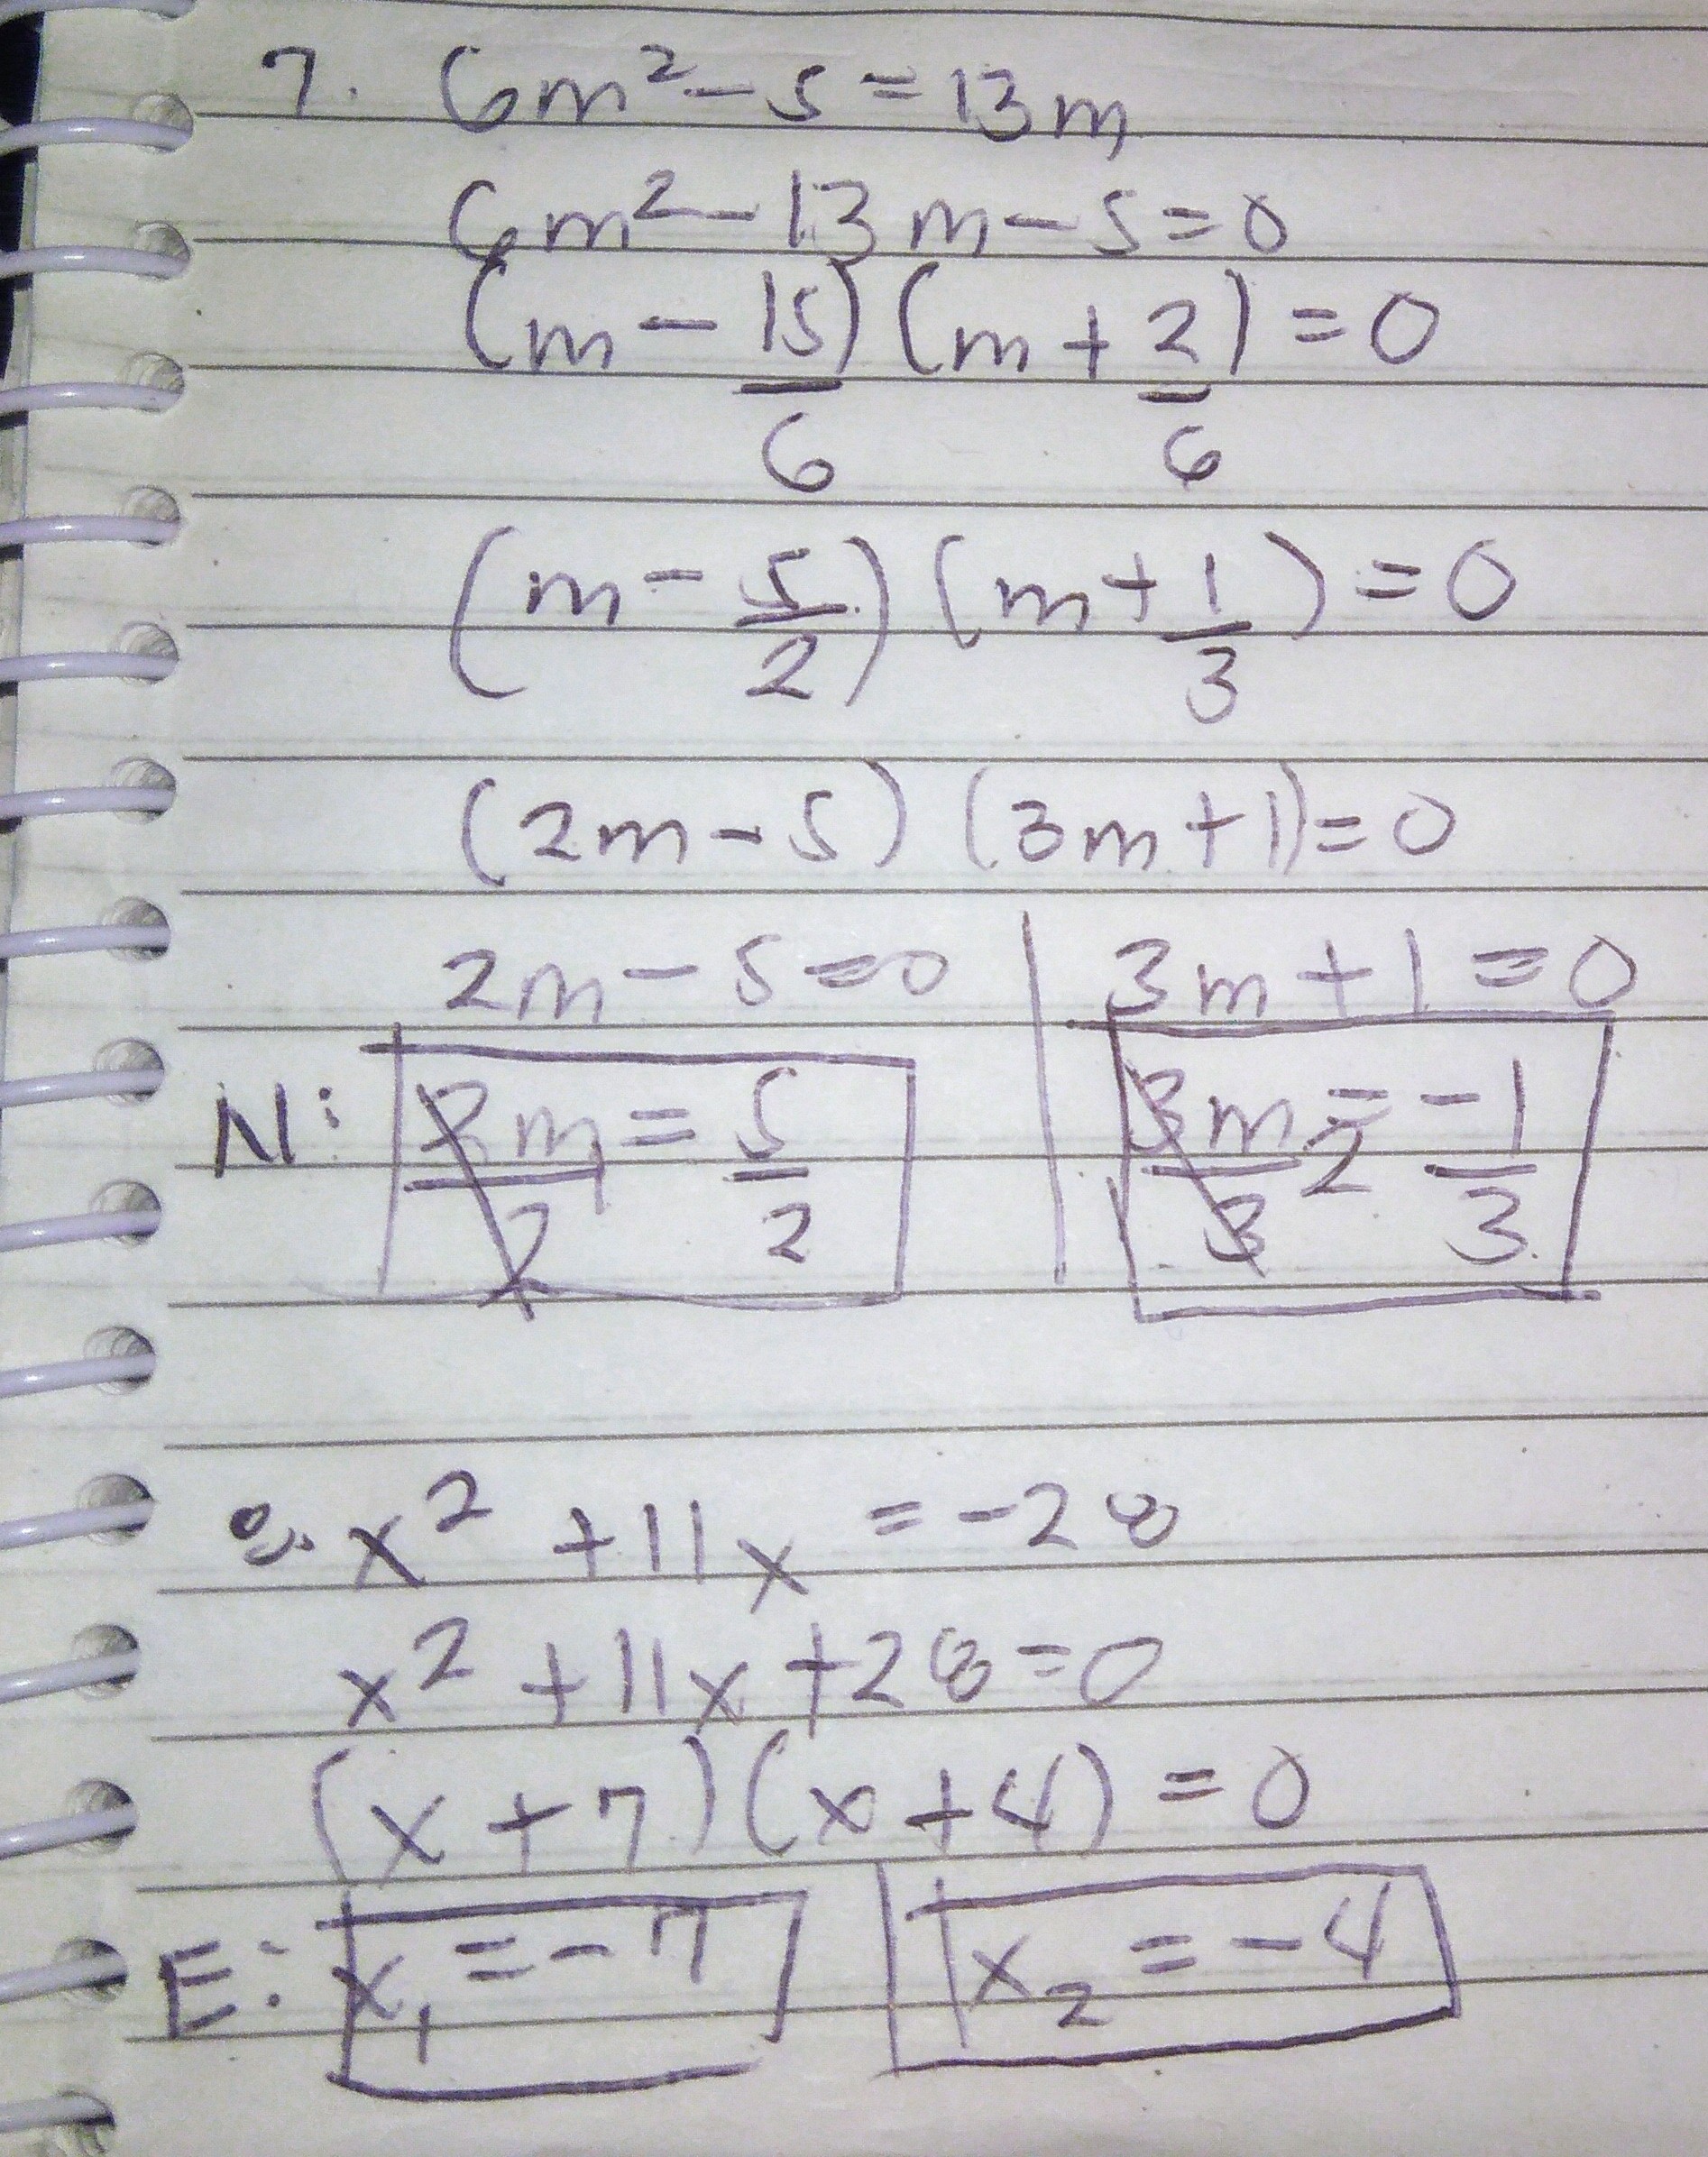 7. 6m² - 5 = 13m
6m² - 13m - 5 = 0
(m - 15/6) (m + 2/6) = 0
(m - 5/2) (m + 1/3) = 0
(2m - 5) (3m + 1) = 0
2m - 5 = 0 | 3m + 1 = 0
N: 2m/2 = 5/2 | 3m/3 = -1/3
8. x² + 11x = -28
x² + 11x + 28 = 0
(x + 7) (x + 4) = 0
E: x₁ = -7 | x₂ = -4